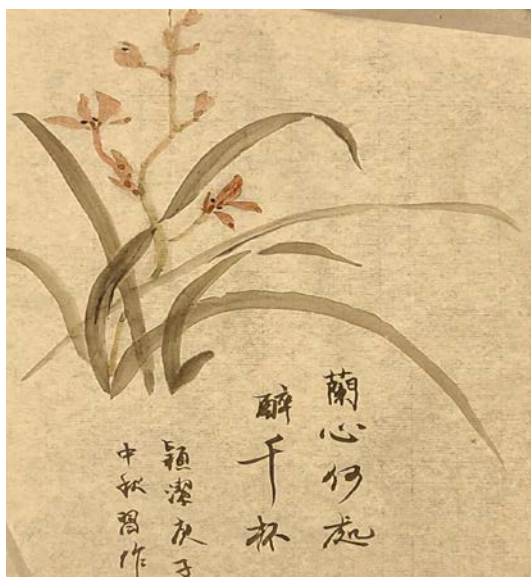 蘭心何處
醉千杯
穎潔庚子
中秋習作